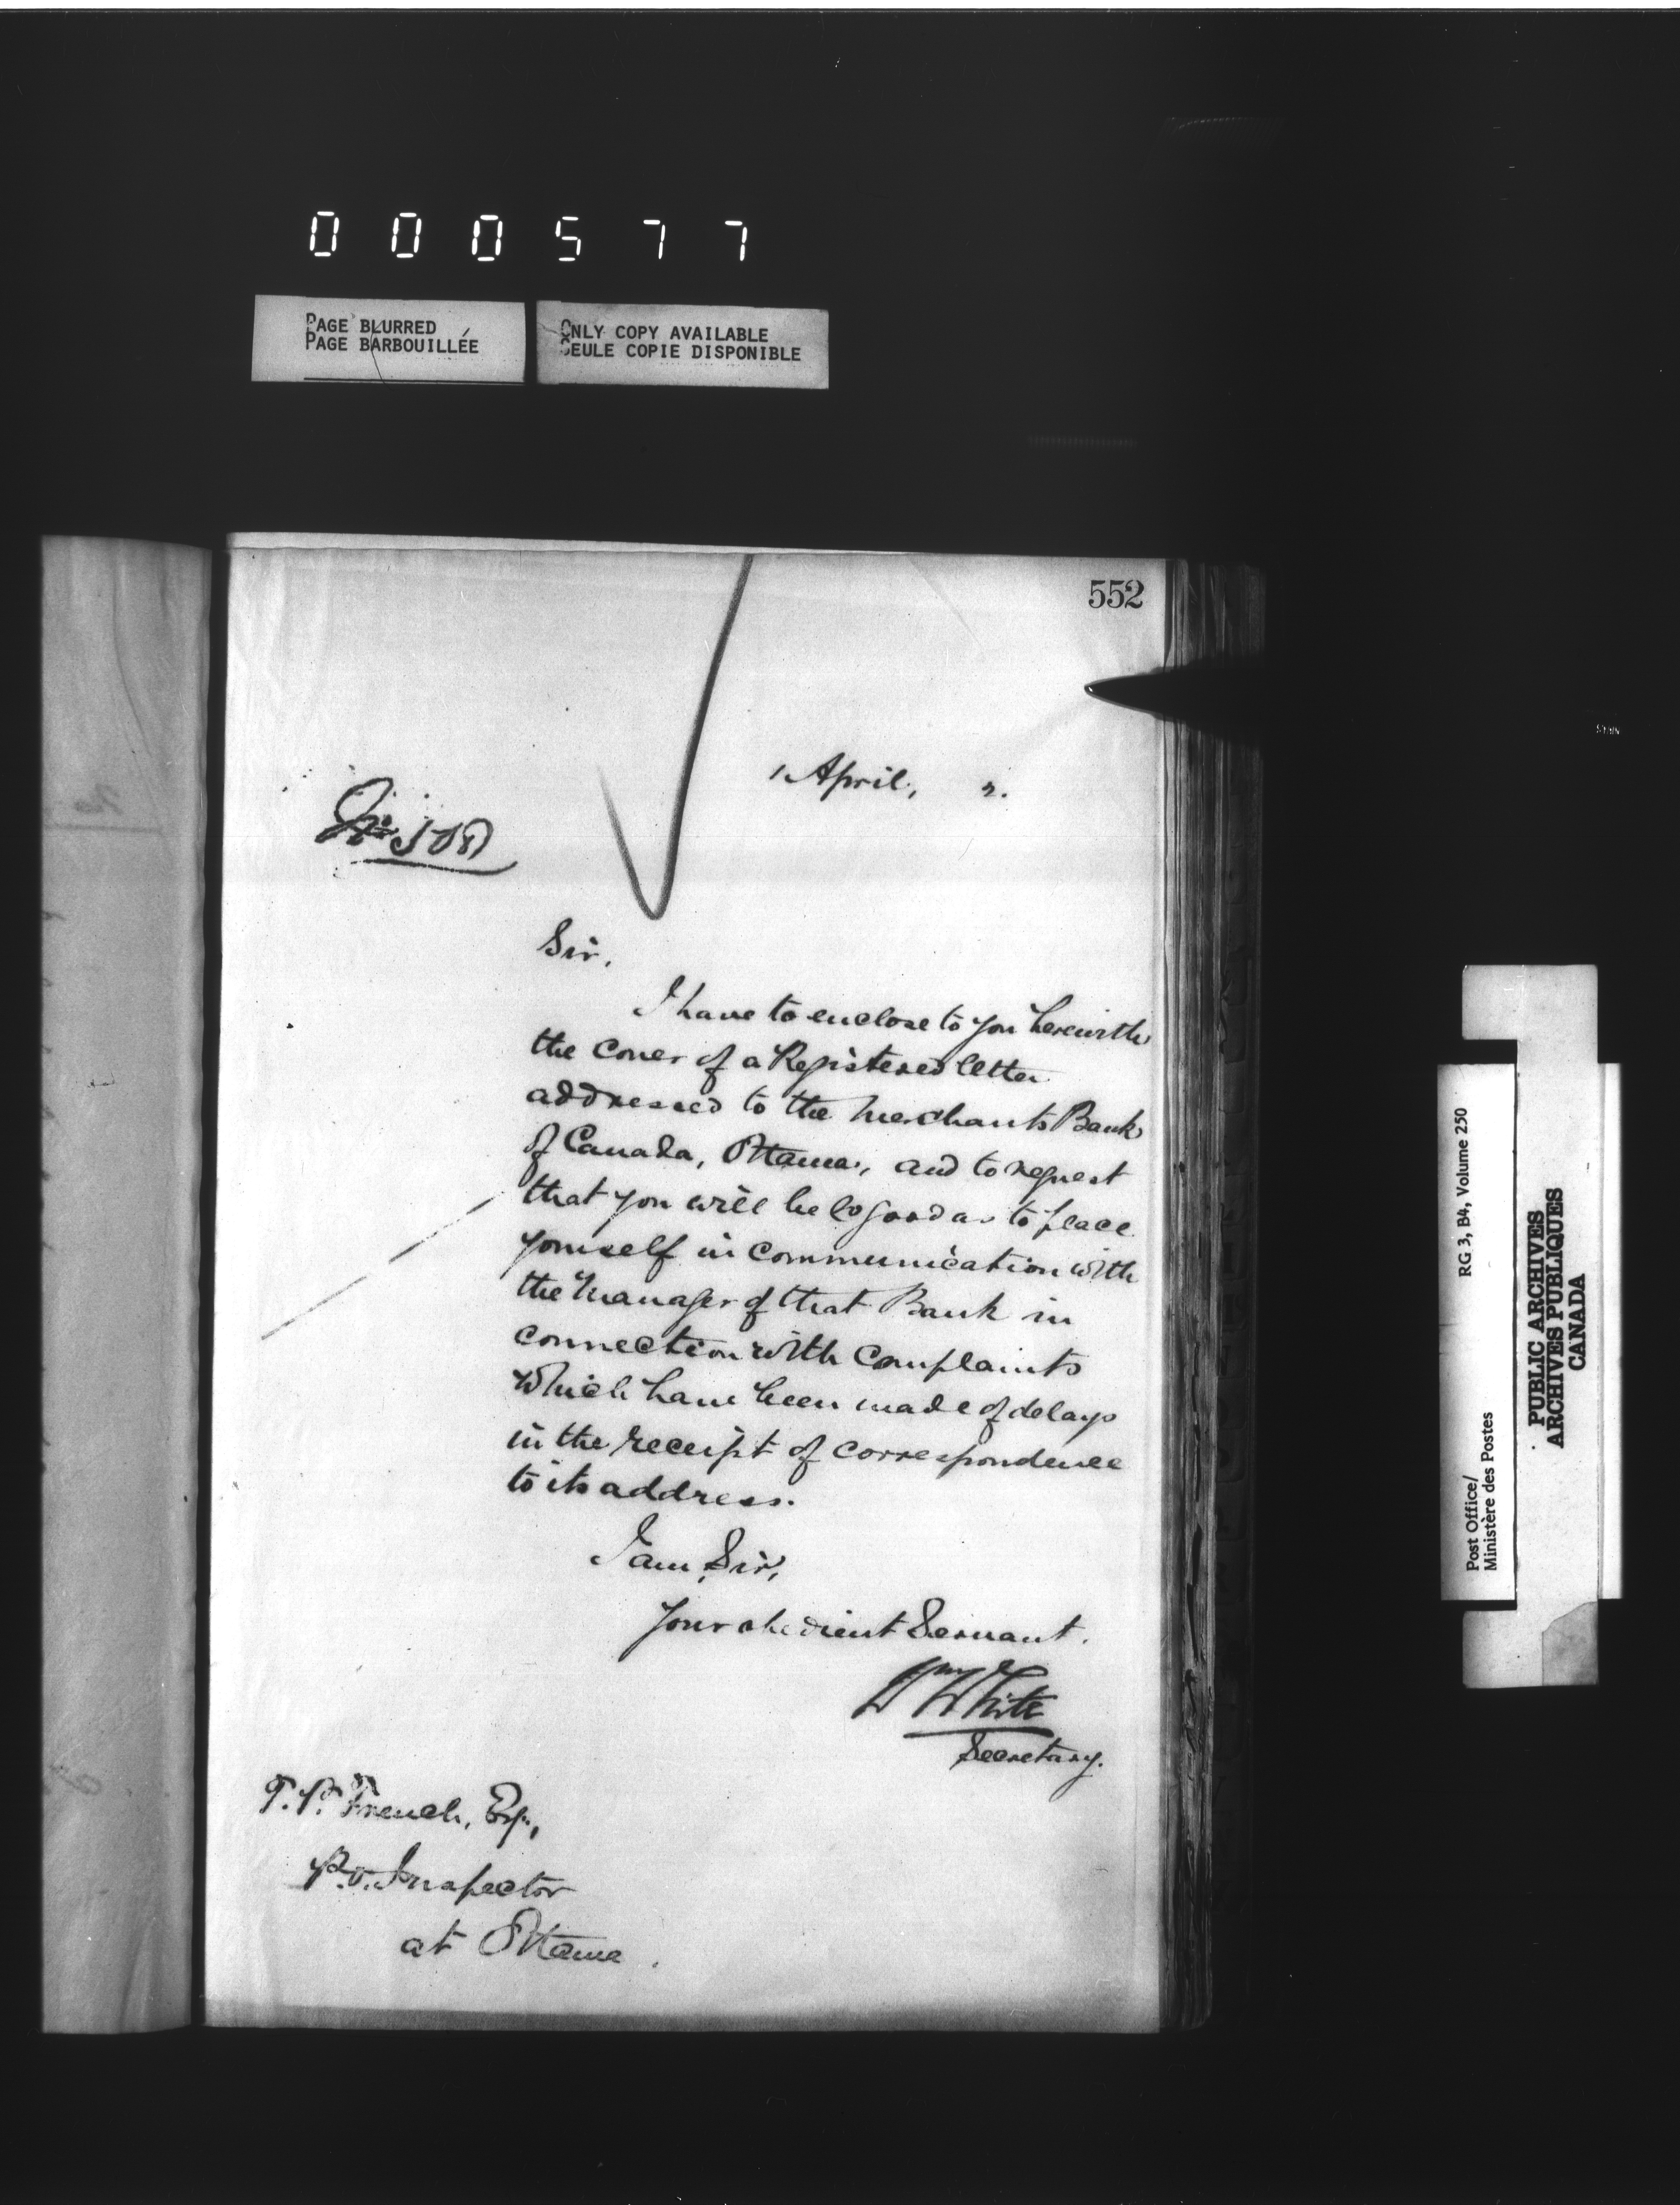 000577
PAGE BLURRED
PAGE BARBOUILLÉE
ONLY COPY AVAILABLE
SEULE COPIE DISPONIBLE
552
1 April, 2.
Sir,
I have to enclose to you herewith
the cover of a Registered letter
addressed to the Merchants Bank
of Canada, Ottawa, and to request
that you will be so good as to place
yourself in communication with
the Manager of that Bank in
connection with complaints
which have been made of delays
in the receipt of correspondence
to its address.
I am, Sir,
Your obedient Servant.
Wm White
Secretary.
T.P. French, Esq.,
P.O. Inspector
at Ottawa.
Post Office/ RG 3, B4, Volume 250
Ministère des Postes
PUBLIC ARCHIVES
ARCHIVES PUBLIQUES
CANADA